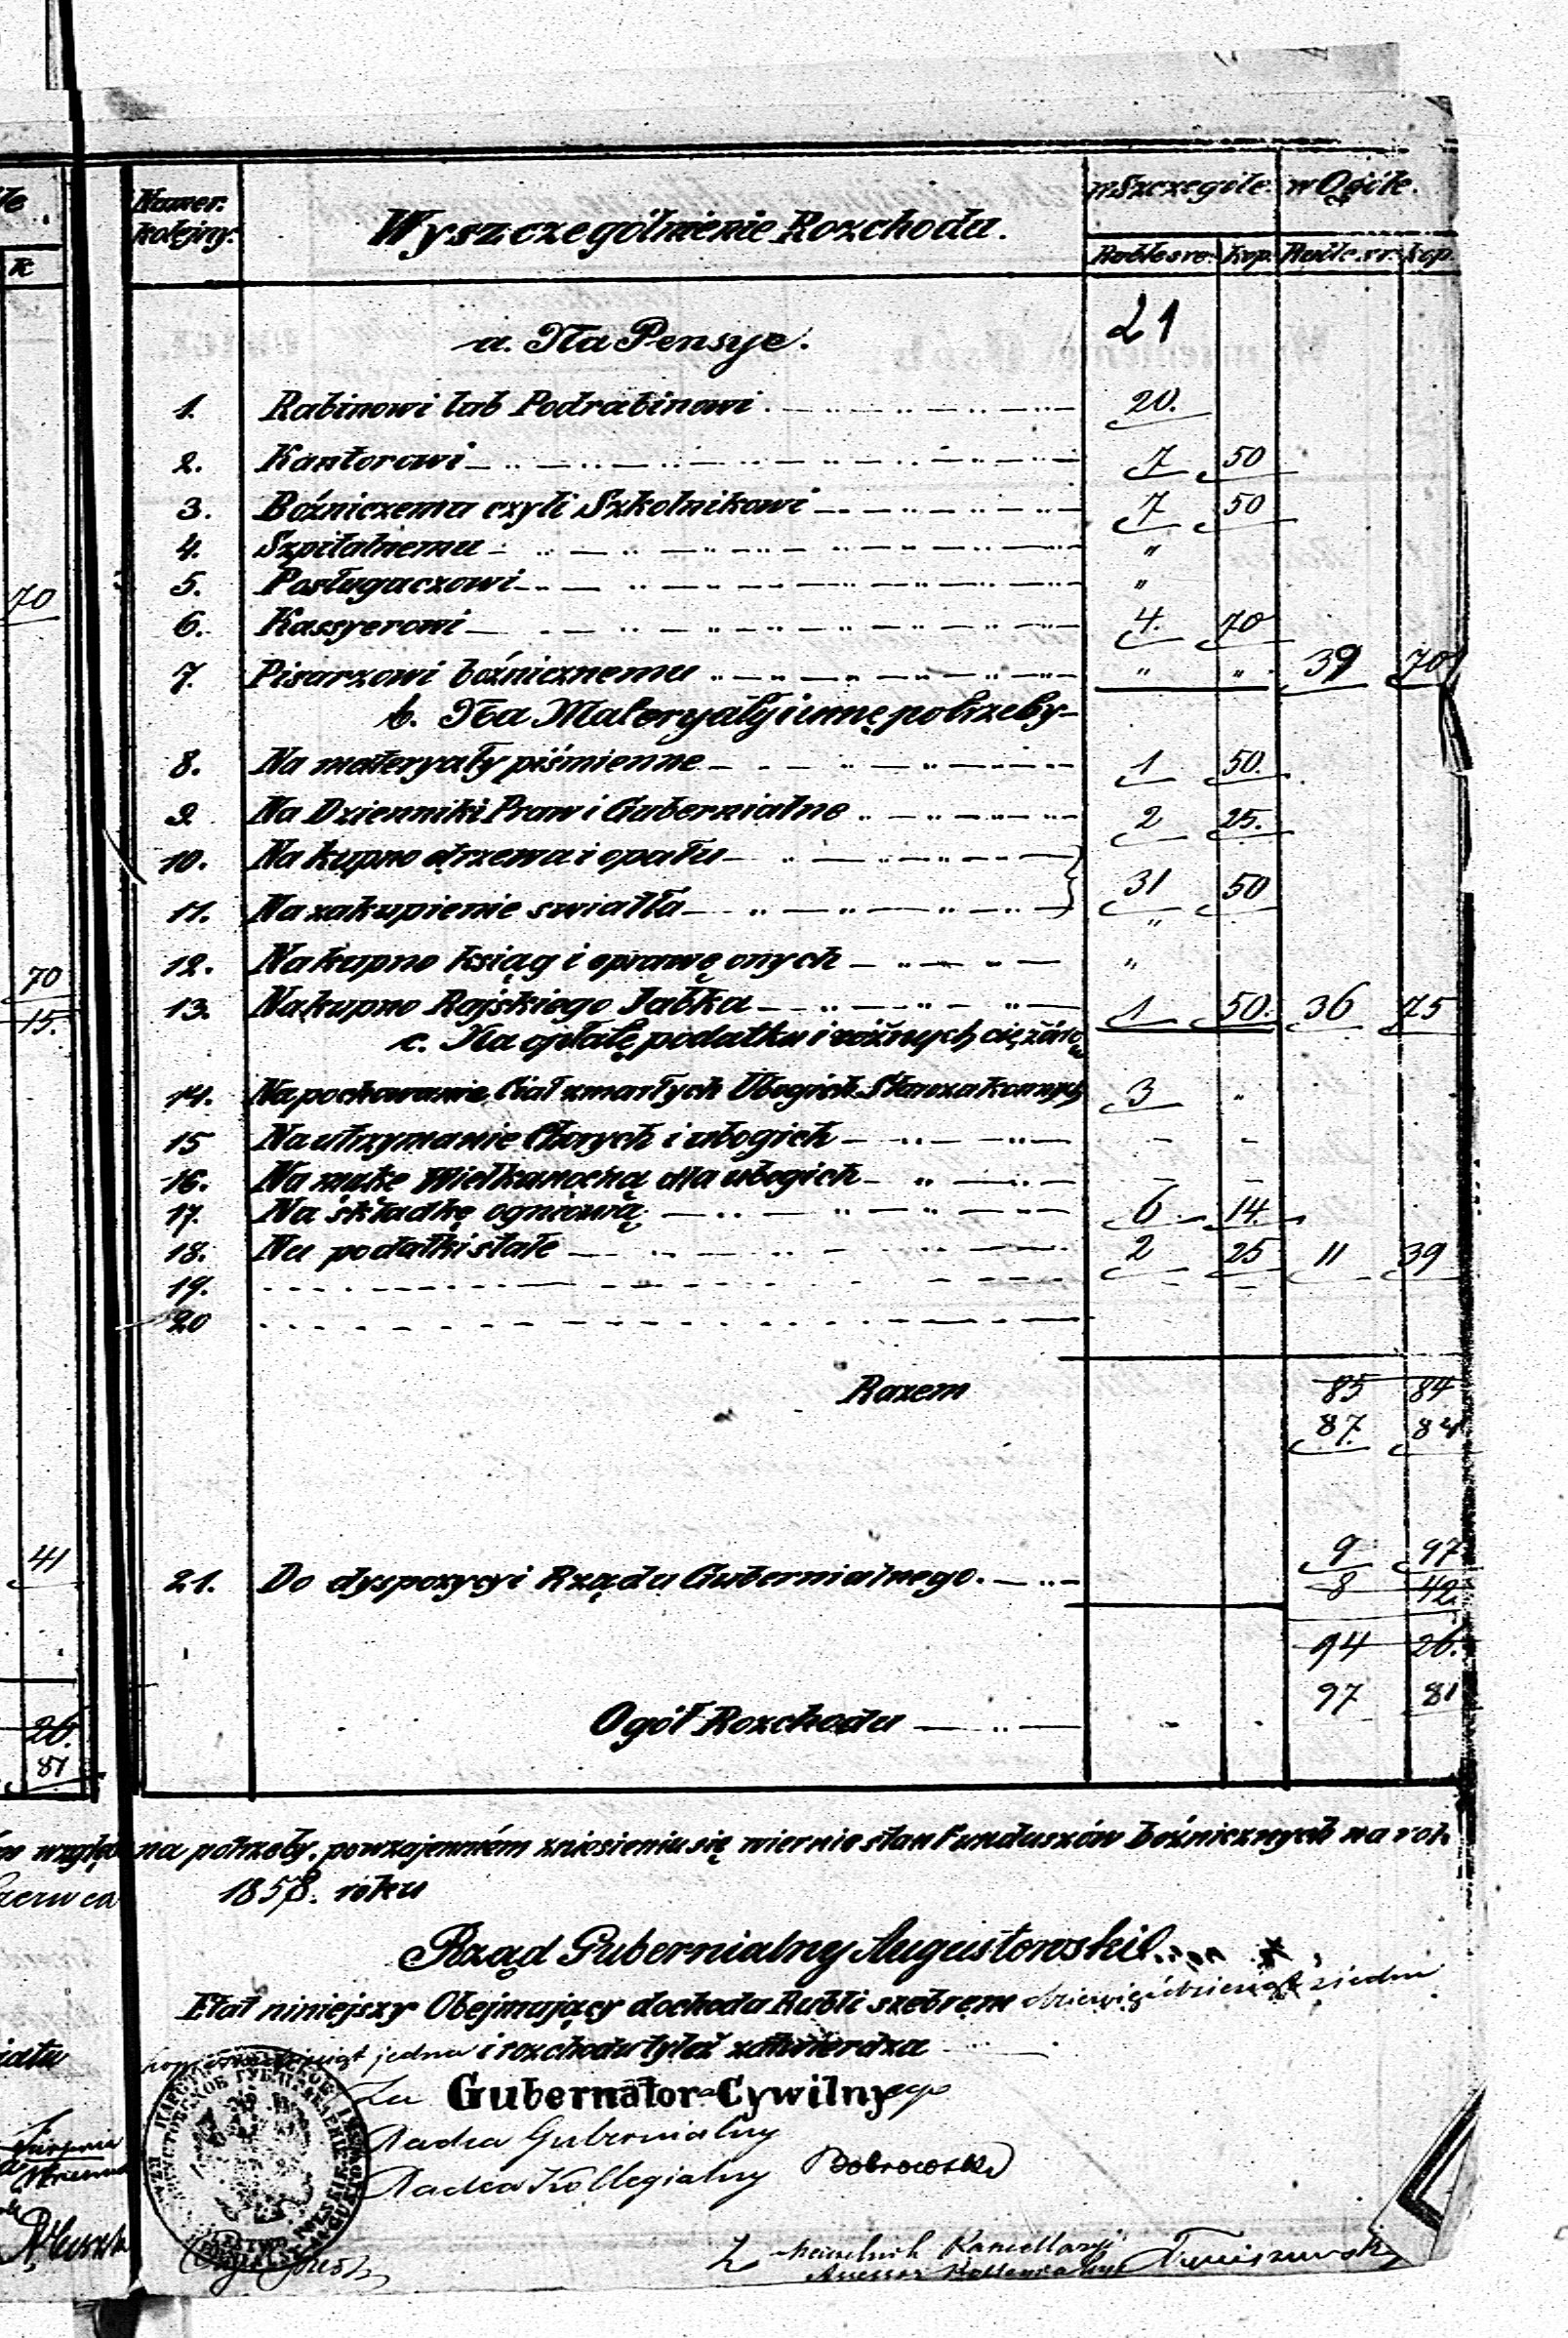 Numer kolejny. Wyszczególnienie Rozchodu. w Szczególe. w Ogóle.
Ruble sre. Kop. Ruble sr. kop.
K
a. Na Pensye. 21
1. Rabinowi lub Podrabinowi 20.
2. Kantorowi 7 50
3. Bóźniczemu czyli Szkolnikowi 7 50
4. Szpitalnemu "
5. Posługaczowi "
70
6. Kassyerowi 4. 70
7. Pisarzowi bóźnicznemu " " 39 70
b. Na Materyały i inne potrzeby
8. Na materyały piśmienne 1 50.
9 Na Dzienniki Praw i Gubernialne 2 25.
10. Na kupno drzewa i opału
31 50
11. Na zakupienie swiatła "
12. Na kupno ksiąg i oprawę onych "
70
13. Na kupno Rajskiego Jabłka 1 50. 36 75
15.
c. Na opłatę podatku i różnych ciężarów
14. Na pochowanie Ciał zmarłych Ubogich Starozakonnych 3 "
15 Na utrzymanie Chorych i ubogich - -
16. Na mąkę Wielkanocną dla ubogich - -
17. Na składkę ogniową 6 14.
18. Na podatki stałe 2 25 11 39
19.
20
Razem 85 84
87. 84
41
9 97
21. Do dyspozycyi Rządu Gubernialnego. 8 42
94 26.
97 81
26.
Ogół Rozchodu
81
na potrzeby. powzajemném zniesieniu się wiernie stan Funduszów bóżnicznych na rok
1858. roku
Rząd Gubernialny Augustowski
Etat niniejszy Obejmujący dochodu Rubli srebrem dziewięćdziesiąt siedm
jedna i rozchodu tyleż zatwierdza
Za Gubernatora Cywilnego
Radca Gubernialny
Radca Kollegialny Dobrowolski
Z Naczelnik Kancellaryi
Assessor Kollegialny